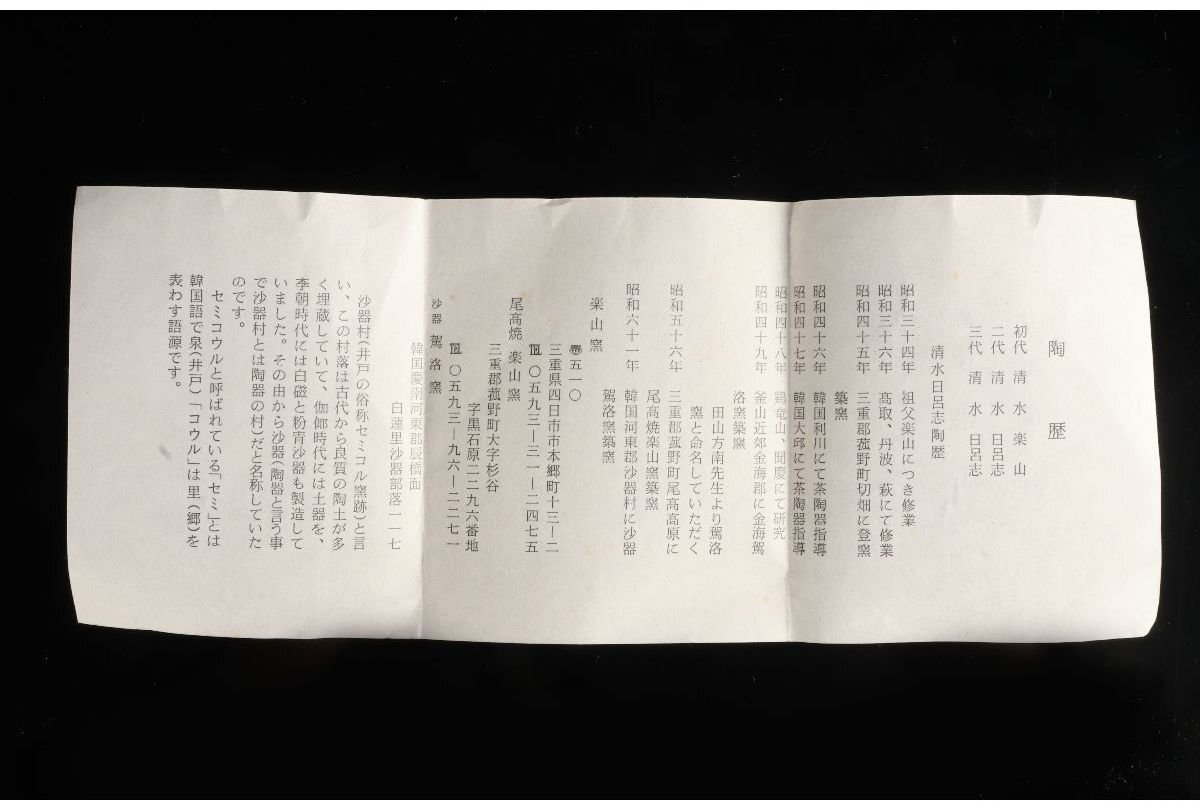 陶歴
初代 清水 楽山
二代 清水 日呂志
三代 清水 日呂志
清水日呂志陶歴
昭和三十四年 祖父楽山につき修業
昭和三十六年 高取、丹波、萩にて修業
昭和四十五年 三重郡菰野町切畑に登窯
築窯
昭和四十六年 韓国利川にて茶陶器指導
昭和四十七年 韓国大邱にて茶陶器指導
昭和四十八年 鶏竜山、聞慶にて研究
昭和四十九年 釜山近郊金海郡に金海駕
洛窯築窯
田山方南先生より駕洛
窯と命名していただく
昭和五十六年 三重郡菰野町尾高高原に
尾高焼楽山窯築窯
昭和六十一年 韓国河東郡沙器村に沙器
駕洛窯築窯
楽山窯
〒五一〇
三重県四日市市本郷町十三―二
℡〇五九三―三一―二四七五
尾高焼 楽山窯
三重郡菰野町大字杉谷
字黒石原二二九六番地
℡〇五九三―九六―二二七一
沙器 駕洛窯
韓国慶南河東郡辰橋面
白蓮里沙器部落一一七
沙器村(井戸の俗称セミコル窯跡)と言
い、この村落は古代から良質の陶土が多
く埋蔵していて、伽倻時代には土器を、
李朝時代には白磁と粉青沙器も製造して
いました。その由から沙器(陶器と言う事
で沙器村とは陶器の村)だと名称していた
のです。
セミコウルと呼ばれている「セミ」とは
韓国語で泉(井戸)「コウル」は里(郷)を
表わす語源です。